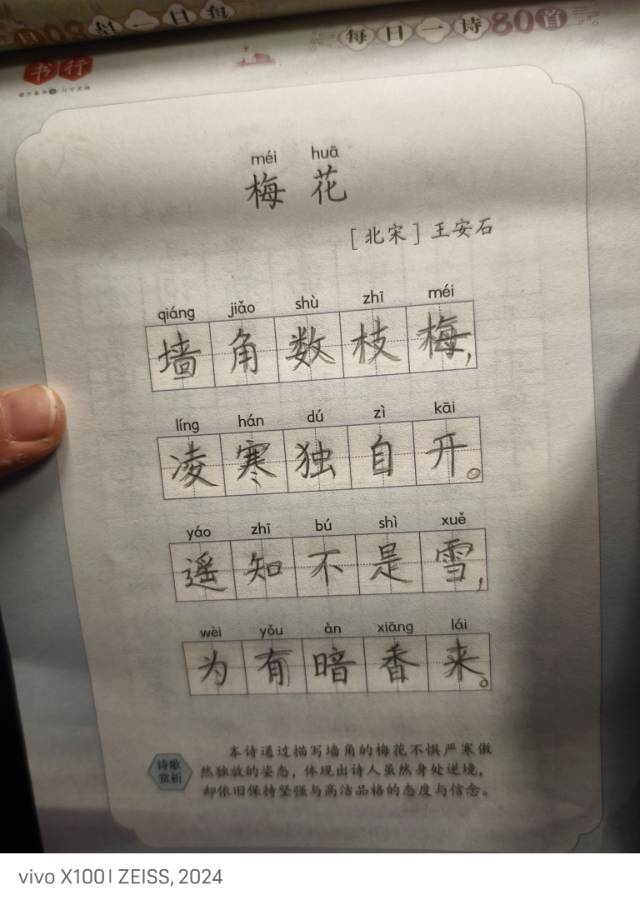 每日一诗80首
书行
méi huā
梅花
[北宋]王安石
qiáng jiǎo shù zhī méi
墙角数枝梅,
líng hán dú zì kāi
凌寒独自开。
yáo zhī bú shì xuě
遥知不是雪,
wèi yǒu àn xiāng lái
为有暗香来。
诗歌
赏析
本诗通过描写墙角的梅花不惧严寒傲
然独放的姿态，体现出诗人虽然身处逆境，
却依旧保持坚强与高洁品格的态度与信念。
vivo X100 | ZEISS, 2024